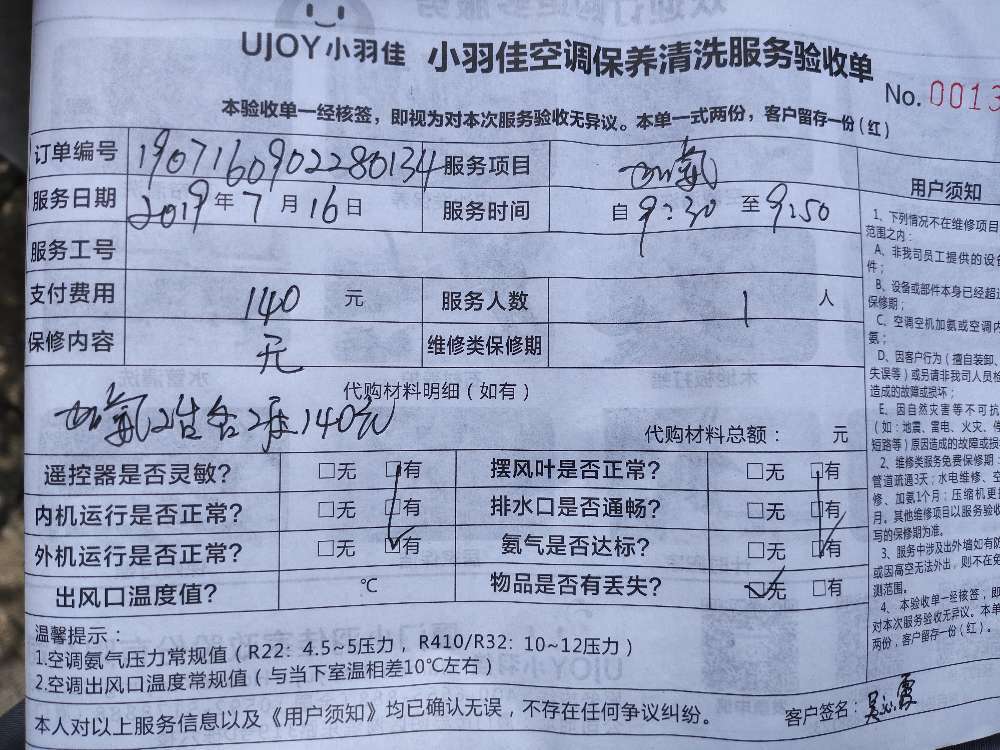 欢迎订购更多服务
UJOY小羽佳 小羽佳空调保养清洗服务验收单
No. 0013
本验收单一经核签，即视为对本次服务验收无异议。本单一式两份，客户留存一份（红）
订单编号 1907160902280134 服务项目 加氨
服务日期 2019年7月16日 服务时间 自9:30至9:50
服务工号
支付费用 140 元 服务人数 1 人
保修内容 无 维修类保修期
代购材料明细（如有）
140元
代购材料总额： 元
遥控器是否灵敏？ □无 □有 摆风叶是否正常？ □无 □有
内机运行是否正常？ □无 □有 排水口是否通畅？ □无 □有
外机运行是否正常？ □无 □有 氨气是否达标？ □无 □有
出风口温度值？ ℃ 物品是否有丢失？ □无 □有
温馨提示：
1.空调氨气压力常规值（R22：4.5~5压力，R410/R32：10~12压力）
2.空调出风口温度常规值（与当下室温相差10℃左右）
本人对以上服务信息以及《用户须知》均已确认无误，不存在任何争议纠纷。
客户签名：
用户须知
1、下列情况不在维修项目
范围之内：
A、非我司员工提供的设备
件；
B、设备或部件本身已经超过
保修期；
C、空调空机加氨或空调内
氨；
D、因客户行为（擅自装卸、
失误等）或另请非我司人员检
造成的故障或损坏；
E、因自然灾害等不可抗
（如：地震、雷电、火灾、停
短路等）原因造成的故障或损
2、维修类服务免费保修期：
管道疏通3天；水电维修、空
修、加氨1个月；压缩机更
月。其他维修项目以服务验收
写的保修期为准。
3、服务中涉及出外墙如有防
或因高空无法外出，则不在免
测范围。
4、本验收单一经核签，即
对本次服务验收无异议。本单
两份，客户留存一份（红）。